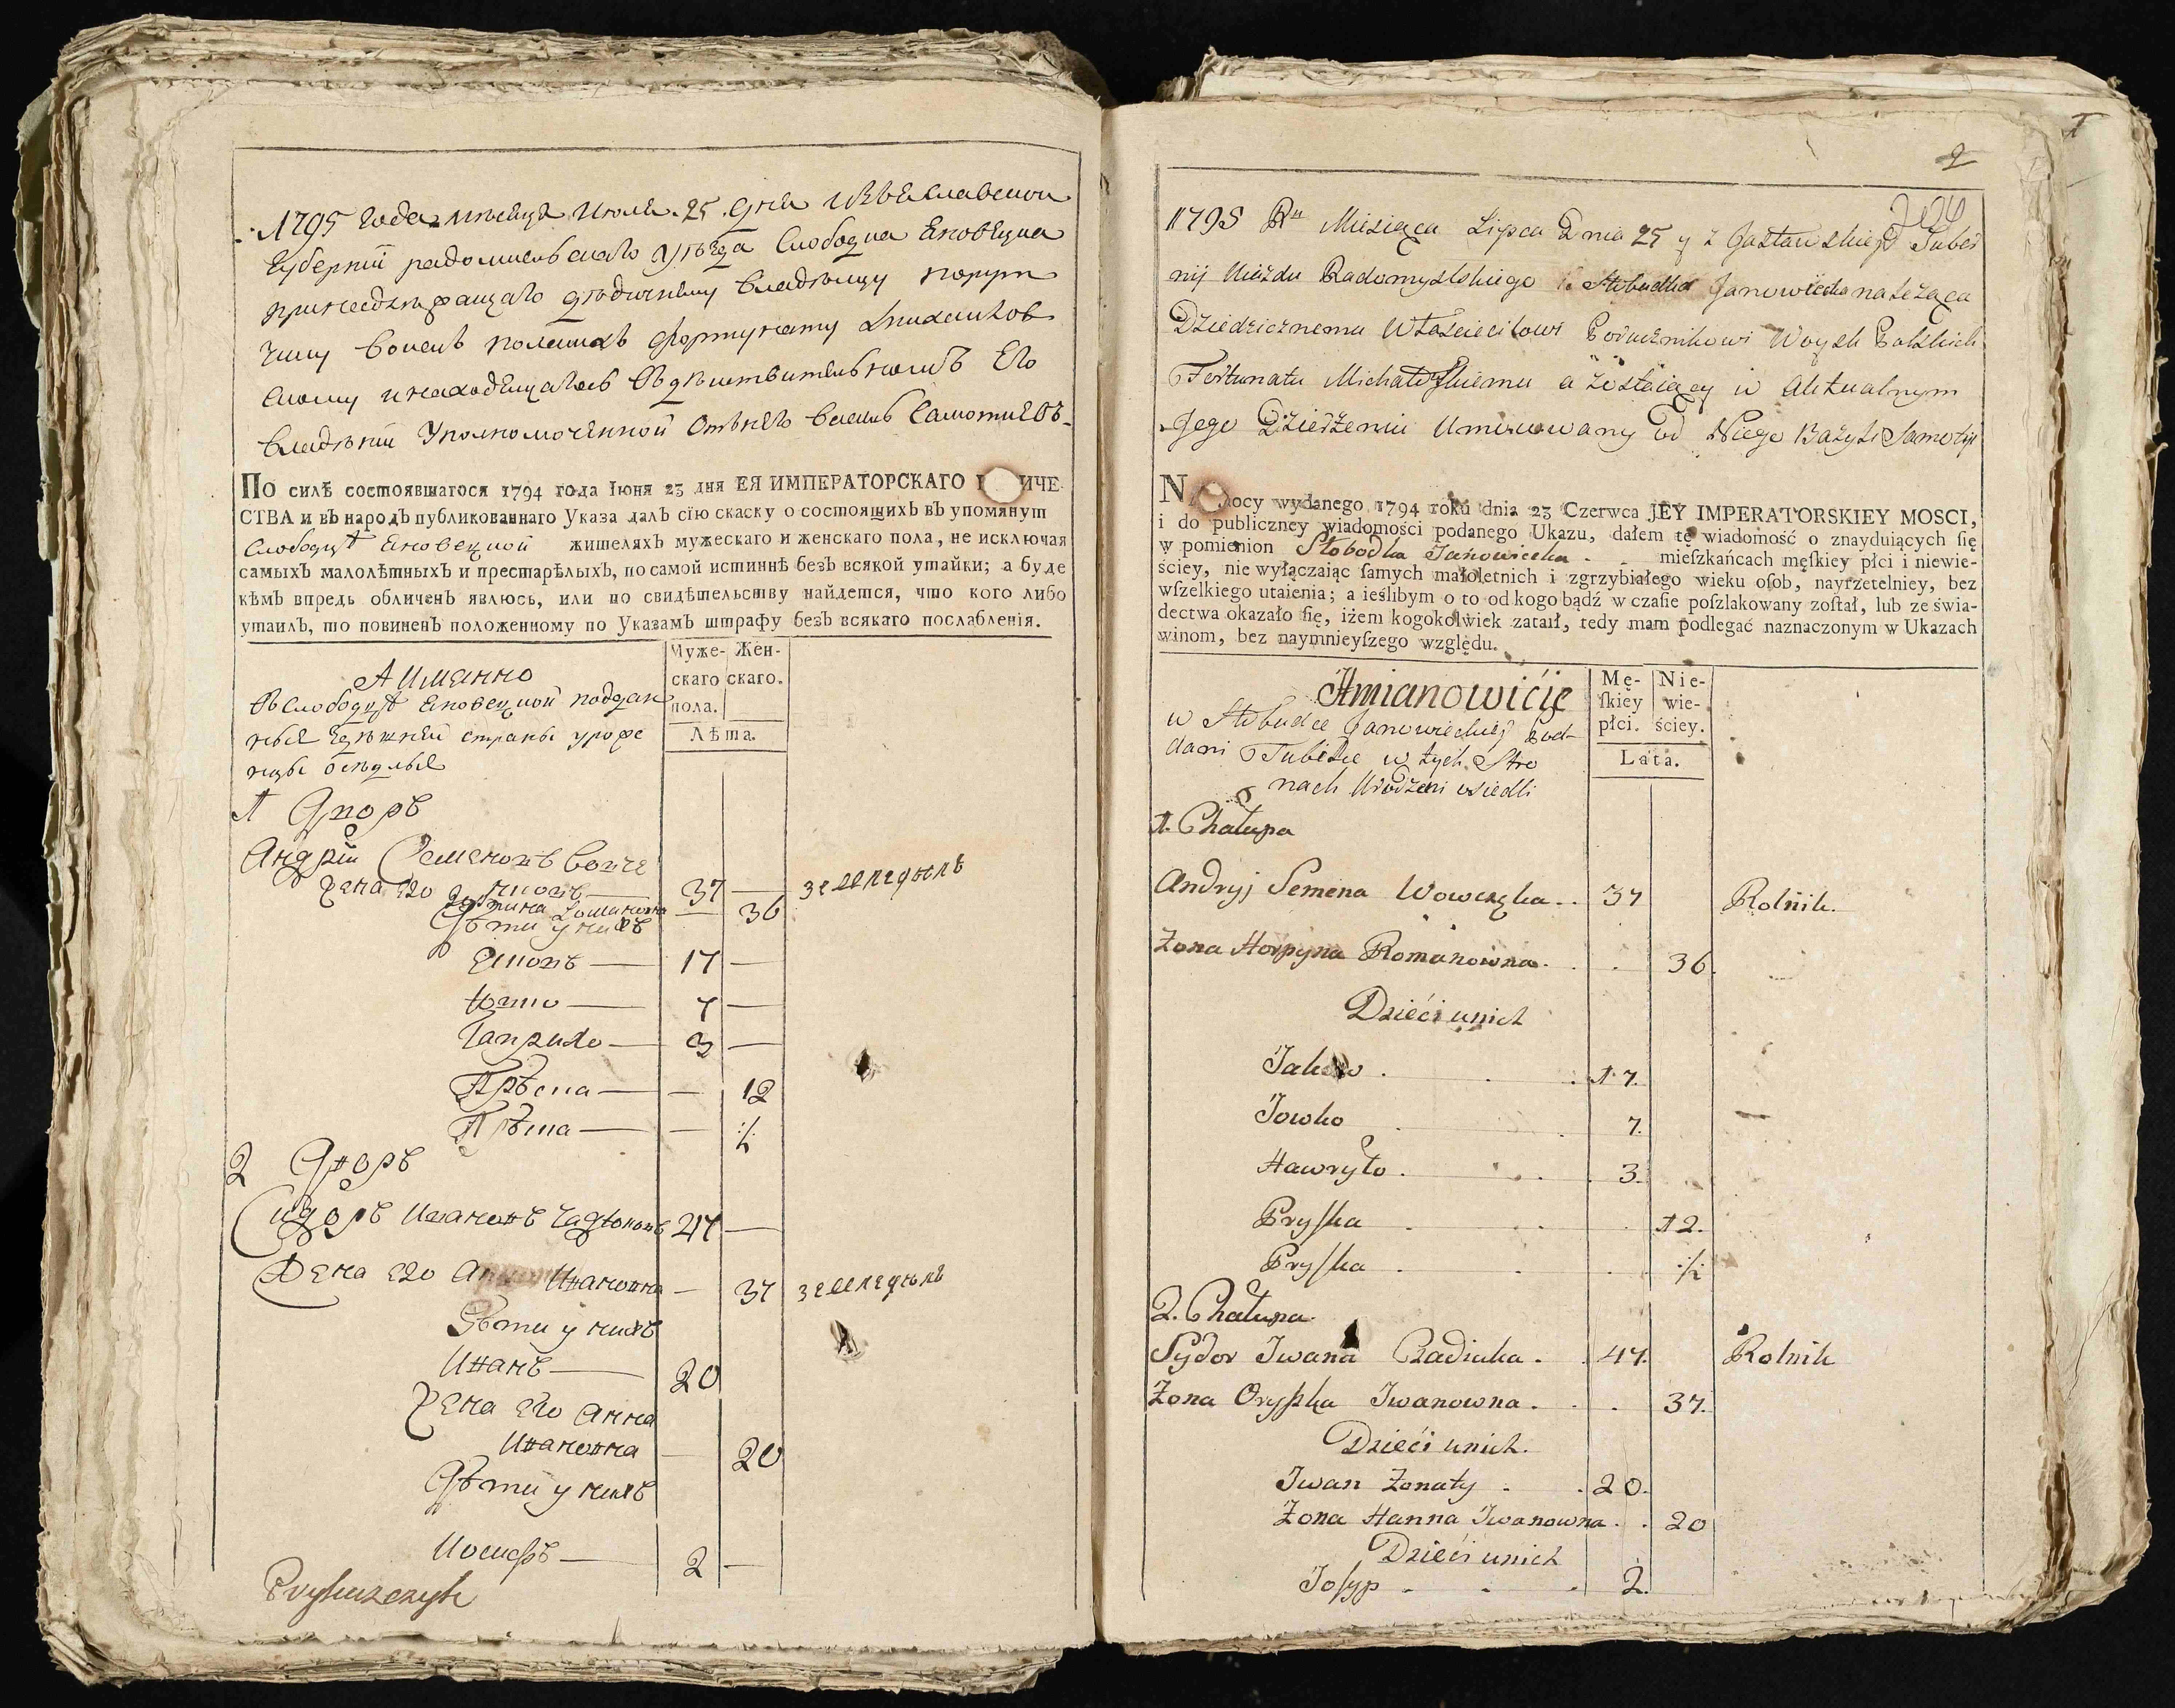 1795 года мѣсяца Июля 25 дня Изѣяславской
Губернїи радомисльскаго уѣзда Слободка Яновецка
принедлежащаго дѣдичному владѣльцу поруч
чику войскъ полскихъ Фортунату Михаловс
кому и находещагось въ дѣиствительномъ Его
владѣнїи Уполномоченной Отънего
По силѣ состоявшагося 1794 года Іюня 23 дня ЕЯ ИМПЕРАТОРСКАГО ИЧЕ-
СТВА и въ народъ публикованнаго Указа далъ сїю скаску о состоящихъ въ упомянут
Слободцѣ Яновецкой жителяхъ мужескаго и женскаго пола, не исключая
самыхъ малолѣтныхъ и престарѣлыхъ, по самой истиннѣ безъ всякой утайки; а буде
кѣмъ впредь обличенъ явлюсь, или по свидѣтельству найдется, что кого либо
утаилъ, то повиненъ положенному по Указамъ штрафу безъ всякаго послабленїя.
Муже- Жен-
скаго скаго.
пола.
Лѣта.
А Имянно
Въ Слободцѣ Яновецкой поддан
ные здѣшней страны уроже
нцы осѣдлые
1 Дворъ
Андрїй Семеновъ Вовче
нковъ — 37 — земледѣлъ
жена его Романовна — 36
Дѣти у нихъ
Яковъ — 17 —
Ювко — 7 —
Гаврило — 3 —
Прѣска — — 12
Прѣска — — ½
2 Дворъ
Сидоръ Ивановъ 47 —
Жена его Ивановна — 37 земледѣлъ
Дѣти у нихъ
Иванъ — 20
Жена его Анна
Ивановна — 20
Дѣти у нихъ
Иосифъ — 2 —
2
1795 Ru Miesiąca Lipca Dnia 25 y z Jastawskiey Guber
nij Uiezdu Radomyslskiego Słobudka Janowiecka należąca
Dziedzicznemu Włascicilowi Porucznikowi Woysk Polskich
Fortunatu Michałowskiemu a zostaiącey w Aktualnym
Jego Dzierżeniu Umocowany od Niego Bazyli Samoty
N ocy wydanego 1794 roku dnia 23 Czerwca JEY IMPERATORSKIEY MOSCI,
i do publiczney wiadomości podanego Ukazu, dałem tę wiadomość o znayduiących się
w pomienion Słobodka Janowiecka mieſzkańcach męſkiey płci i niewie-
ściey, nie wyłączaiąc ſamych małoletnich i zgrzybiałego wieku oſob, nayrzetelniey, bez
wſzelkiego utaienia; a ieślibym o to od kogo bądź w czaſie poſzlakowany zoſtał, lub ze świa-
dectwa okazało ſię, iżem kogokolwiek zataił, tedy mam podlegać naznaczonym w Ukazach
winom, bez naymnieyſzego względu.
Mę- Nie-
ſkiey wie-
płci. ściey.
Lata.
Amianowićie
w Słobudce Janowieckiey Pod-
dani Tubilce w tych Stro
nach Urodzeni osiedli
1. Chałupa
Andryj Semena Wowczęka. 37 Rolnik.
Żona Horpyna Romanowna. 36.
Dzieći unich
Jakow . 17.
Jowko 7.
Hawryło . 3.
Pryſka 12.
Pryſka ½
2. Chałupa.
Sydor Jwana Radiuka . 47. Rolnik
Żona Oryſzka Jwanowna . 37.
Dzieći unich.
Jwan Żonaty . 20.
Żona Hanna Jwanowna . 20
Dzieći unich
Joſyp . 2.